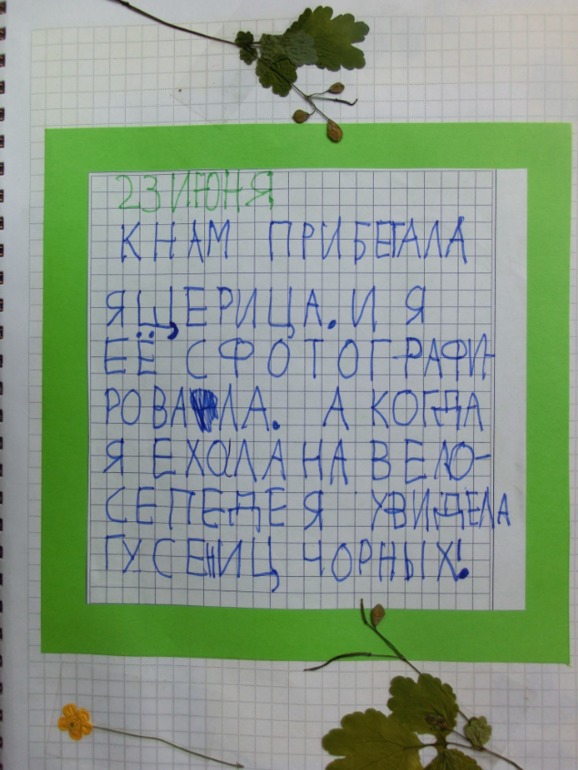 23 ИЮНЯ
К НАМ ПРИБЕГАЛА
ЯЩЕРИЦА. И Я
ЕЁ СФОТОГРАФИ-
РОВАЛА. А КОГДА
Я ЕХАЛА НА ВЕЛО-
СЕПЕДЕ Я УВИДЕЛА
ГУСЕНИЦ ЧОРНЫХ!